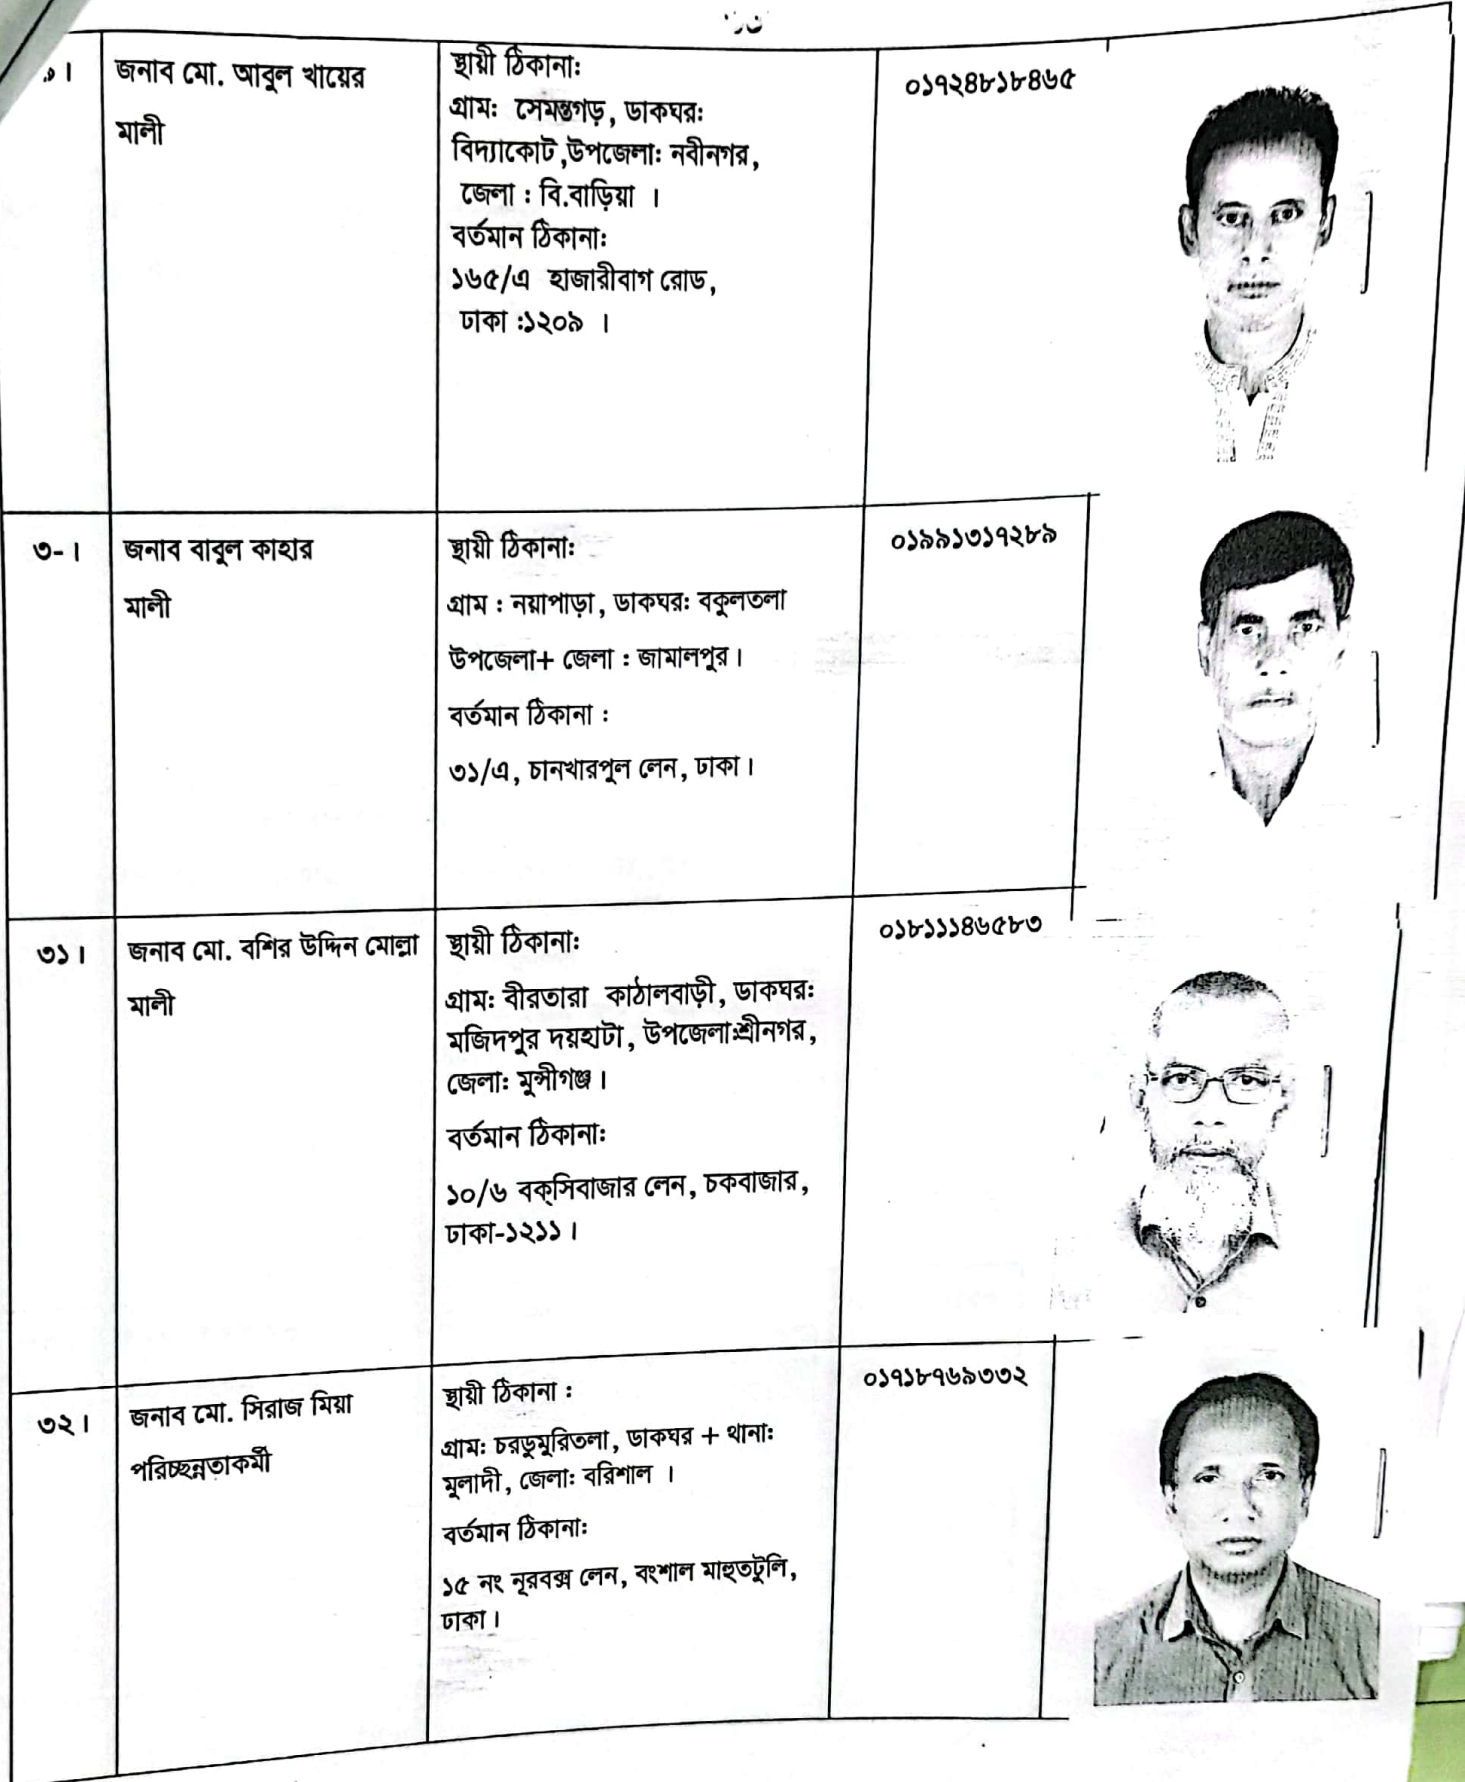 ৯।
জনাব মো. আবুল খায়ের
মালী
স্থায়ী ঠিকানা:
গ্রাম: সেমন্তগড়, ডাকঘর:
বিদ্যাকোট,উপজেলা: নবীনগর,
জেলা : বি.বাড়িয়া ।
বর্তমান ঠিকানা:
১৬৫/এ হাজারীবাগ রোড,
ঢাকা :১২০৯ ।
০১৭২৪৮১৮৪৬৫
৩-।
জনাব বাবুল কাহার
মালী
স্থায়ী ঠিকানা:
গ্রাম : নয়াপাড়া, ডাকঘর: বকুলতলা
উপজেলা+ জেলা : জামালপুর।
বর্তমান ঠিকানা :
৩১/এ, চানখারপুল লেন, ঢাকা।
০১৯৯১৩১৭২৮৯
৩১।
জনাব মো. বশির উদ্দিন মোল্লা
মালী
স্থায়ী ঠিকানা:
গ্রাম: বীরতারা কাঠালবাড়ী, ডাকঘর:
মজিদপুর দয়হাটা, উপজেলা:শ্রীনগর,
জেলা: মুন্সীগঞ্জ।
বর্তমান ঠিকানা:
১০/৬ বক্‌সিবাজার লেন, চকবাজার,
ঢাকা-১২১১।
০১৮১১১৪৬৫৮৩
৩২।
জনাব মো. সিরাজ মিয়া
পরিচ্ছন্নতাকর্মী
স্থায়ী ঠিকানা :
গ্রাম: চরডুমুরিতলা, ডাকঘর + থানা:
মুলাদী, জেলা: বরিশাল ।
বর্তমান ঠিকানা:
১৫ নং নূরবক্স লেন, বংশাল মাহুতটুলি,
ঢাকা।
০১৭১৮৭৬৯৩৩২